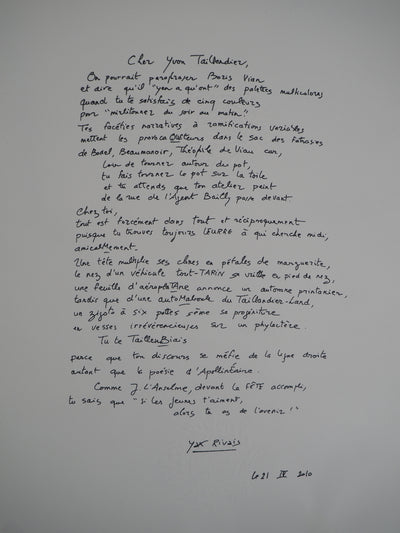 Cher Yvon Taillandier,
On pourrait paraphraser Boris Vian
et dire qu'il "yen a qu'ont" des palettes multicolores
quand tu te satisfais de cinq couleurs
pour "mirlitonner du soir au matin"
Tes facéties narratives à ramifications variables
mettent les provocaQUAteurs dans le sac des Fatrasies
de Bodel, Beaumanoir, Théophile de Viau car,
loin de tourner autour du pot,
tu fais tourner le pot sur la toile
et tu attends que ton atelier peint
de la rue de l'Agent Bailly passe devant
Chez toi,
tout est forcément dans tout et réciproquement
puisque tu trouves toujours LEURRE à qui cherche midi,
amicalMement.
Une tête multiplie ses clones en pétales de marguerite,
le nez d'un véhicule tout-TARIN se vrille en pied de nez,
une feuille d'aéroplaTANE annonce un automne printanier,
tandis que d'une autoMaboule du Taillandier-Land,
un zigoto à six pattes sème sa progéniture
en vesses irrévérencieuses sur un phylactère.
Tu te TaillenBiais
parce que ton discours se méfie de la ligne droite
autant que la poésie d'Apollinfaire.
Comme J. L'Anselme, devant la FÊTE accompli,
tu sais que "si les jeunes t'aiment,
alors tu as de l'avenir!"
Yak Rivais
le 21 IV 2010